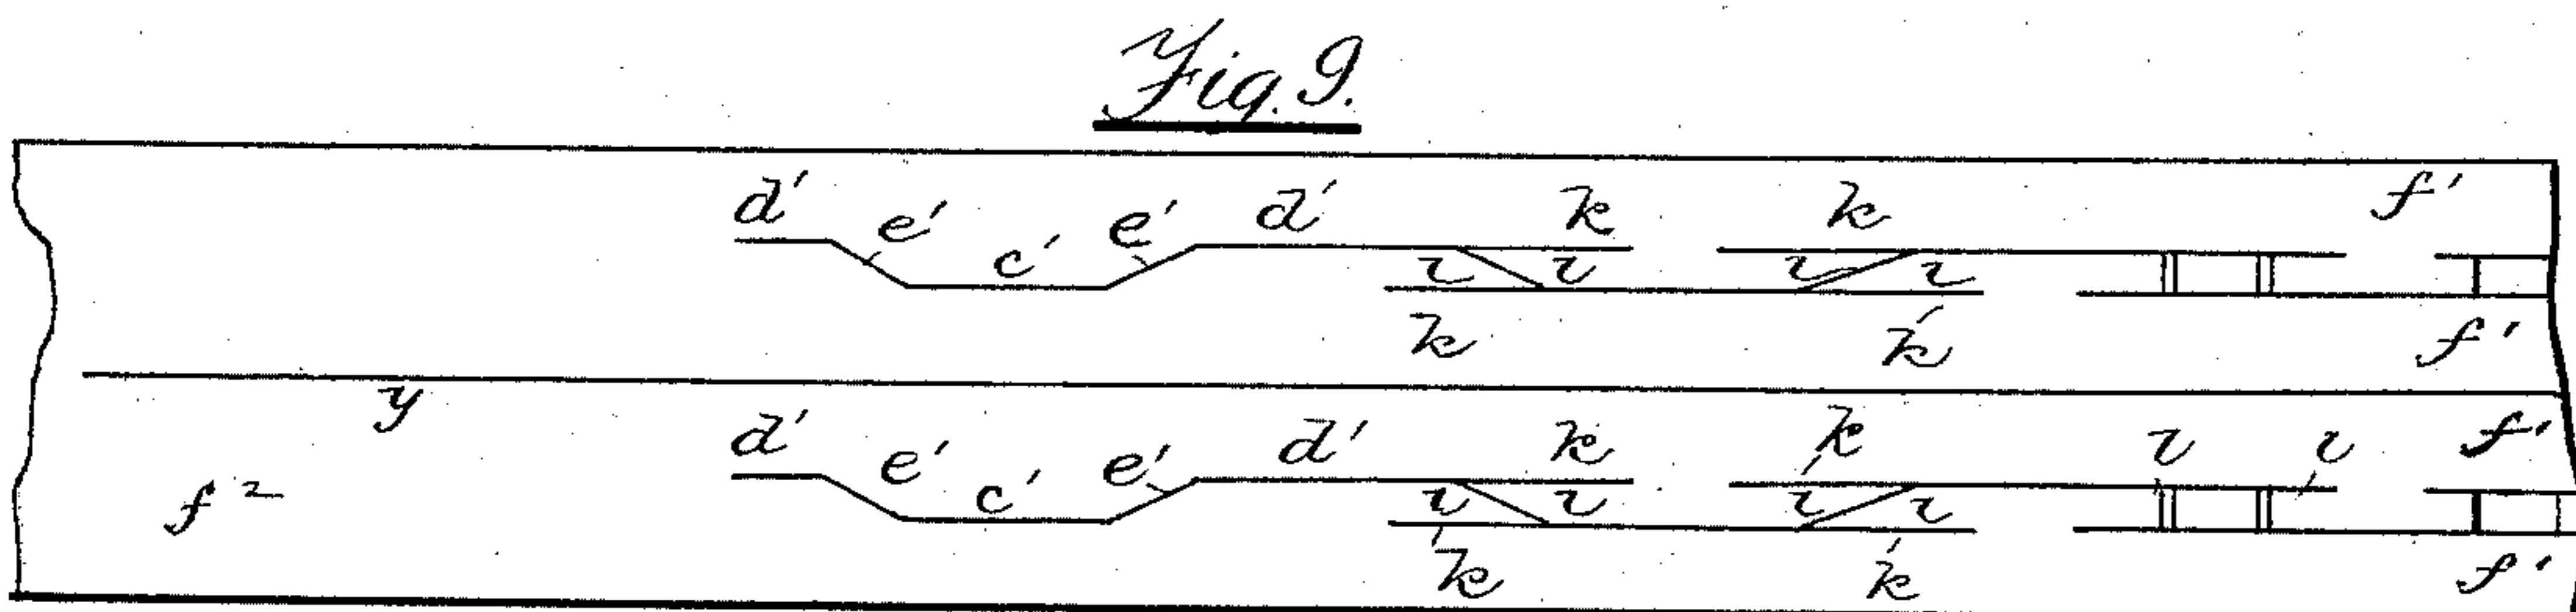 Fig. 9.
d' e' c' e' d' k k f'
i i i i
k k f'
y
d' e' c' e' d' k k i i f'
f² i i i i
k k f'